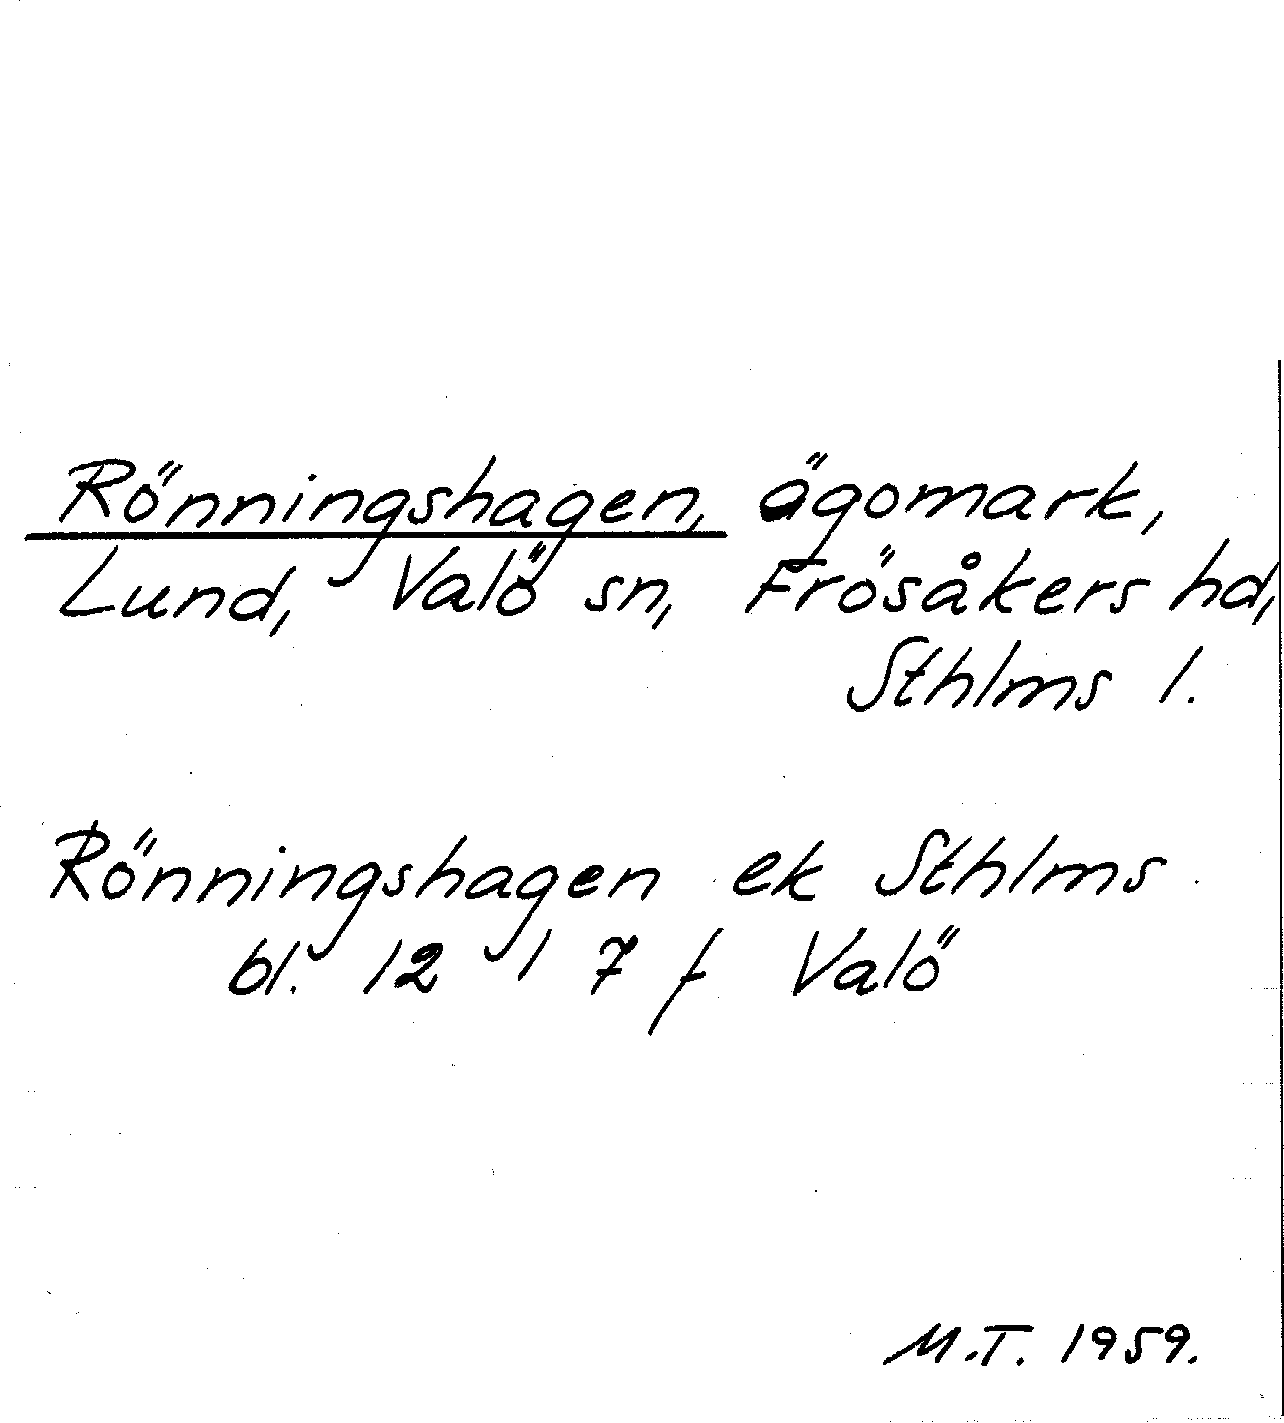 Rönningshagen, ägomark,
Lund, Valö sn, Frösåkers hd,
Sthlms l.
Rönningshagen ek Sthlms
bl. 12 1 7 f Valö
M.T. 1959.